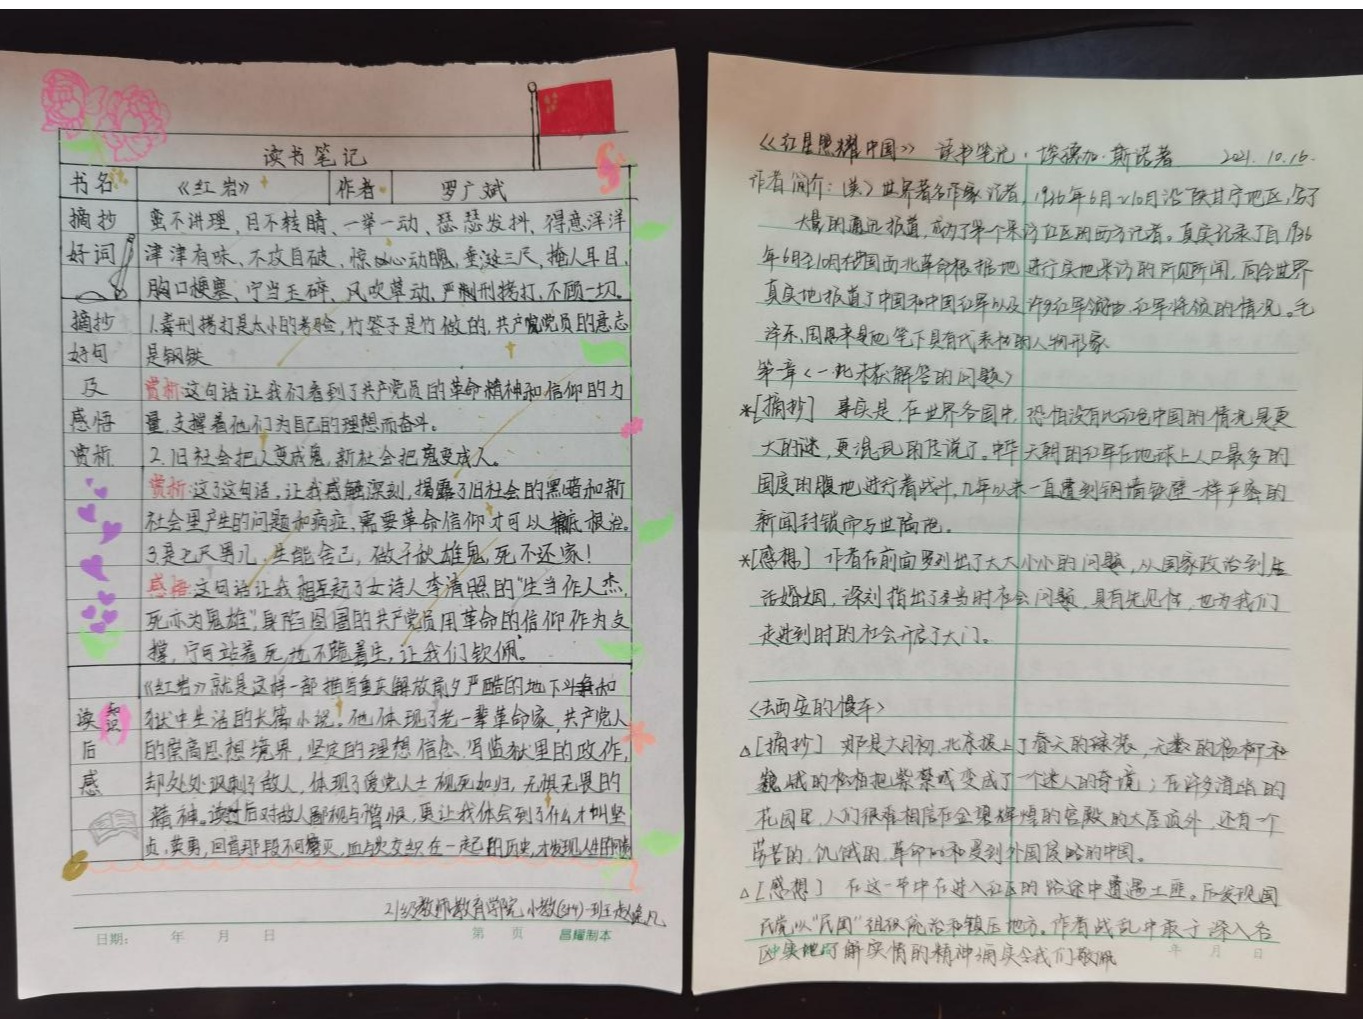 读书笔记
书名 《红岩》 作者 罗广斌
摘抄 蛮不讲理、目不转睛、一举一动、瑟瑟发抖、得意洋洋
好词 津津有味、不攻自破、惊心动魄、垂涎三尺、掩人耳目、
胸口梗塞、宁当玉碎、风吹草动、严刑拷打、不顾一切。
摘抄 1.毒刑拷打是太小的考验,竹签子是竹做的,共产党员的意志
好句 是钢铁
及 赏析:这句话让我们看到了共产党员的革命精神和信仰的力
感悟 量,支撑着他们为自己的理想而奋斗。
赏析 2.旧社会把人变成鬼,新社会把鬼变成人。
赏析:这了这句话,让我感触深刻,揭露了旧社会的黑暗和新
社会里产生的问题和病症,需要革命信仰才可以彻底根治。
3.是七尺男儿,生能舍己,做千秋雄鬼,死不还家!
感悟:这句话让我想起了女诗人李清照的"生当作人杰,
死亦为鬼雄",身陷囹圄的共产党员用革命的信仰作为支
撑,宁可站着死,也不跪着生,让我们钦佩。
《红岩》就是这样一部描写重庆解放前夕严酷的地下斗争和
读 知识 狱中生活的长篇小说。他体现了老一辈革命家,共产党人
后 的崇高思想境界,坚定的理想信念,写监狱里的政作,
感 却处处讽刺了敌人,体现了爱党人士视死如归,无惧无畏的
精神。读过后对敌人鄙视与憎恨,更让我体会到了什么才叫坚
贞,英勇,回首那段不可磨灭,血与火交织在一起的历史,才发现人生的
21级教师教育学院 小教 一班
日期: 年 月 日 第 页 昌耀制本
《红星照耀中国》 读书笔记·埃德加·斯诺著 2021.10.16.
作者简介:(美)世界著名作家、记者,1936年6月至10月沿陕甘宁地区,写了
大量的通讯报道,成为了第一个采访红区的西方记者。真实记录了自1936
年6月至10月在中国西北革命根据地进行实地采访的所见所闻,向全世界
真实地报道了中国和中国红军以及许多红军领袖、红军将领的情况。毛
泽东、周恩来是他笔下具有代表性的人物形象
第一章<一些未获解答的问题>
*[摘抄] 事实是,在世界各国中,恐怕没有比红色中国的情况是更
大的谜,更混乱的传说了。中华天朝的红军在地球上人口最多的
国度的腹地进行着战斗,几年以来一直遭到铜墙铁壁一样严密的
新闻封锁而与世隔绝。
*[感想] 作者在前面罗列出了大大小小的问题,从国家政治到生
活婚姻,深刻指出了当时社会问题,具有先见性,也为我们
走进到时的社会开启了大门。
<去西安的慢车>
△[摘抄] 那是六月初,北京披上了春天的绿装,无数的杨柳和
巍峨的松柏把紫禁城变成了一个迷人的奇境;在许多清幽的
花园里,人们很难相信在金碧辉煌的宫殿的大屋顶外,还有一个
劳苦的,饥饿的,革命的和受到外国侵略的中国。
△[感想] 在这一章中在进入红区的路途中遭遇土匪。后发现国
民党以"民团"组织统治和镇压地方。作者战乱中敢于深入各
区实地了解实情的精神确实令我们敬佩
年 月 日